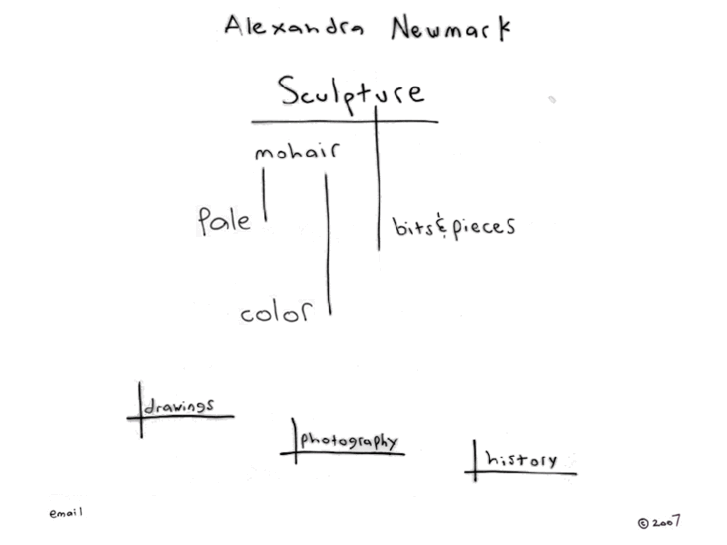 Alexandra Newmark
Sculpture
mohair
Pale
bits & pieces
color
drawings
photography
history
email
© 2007